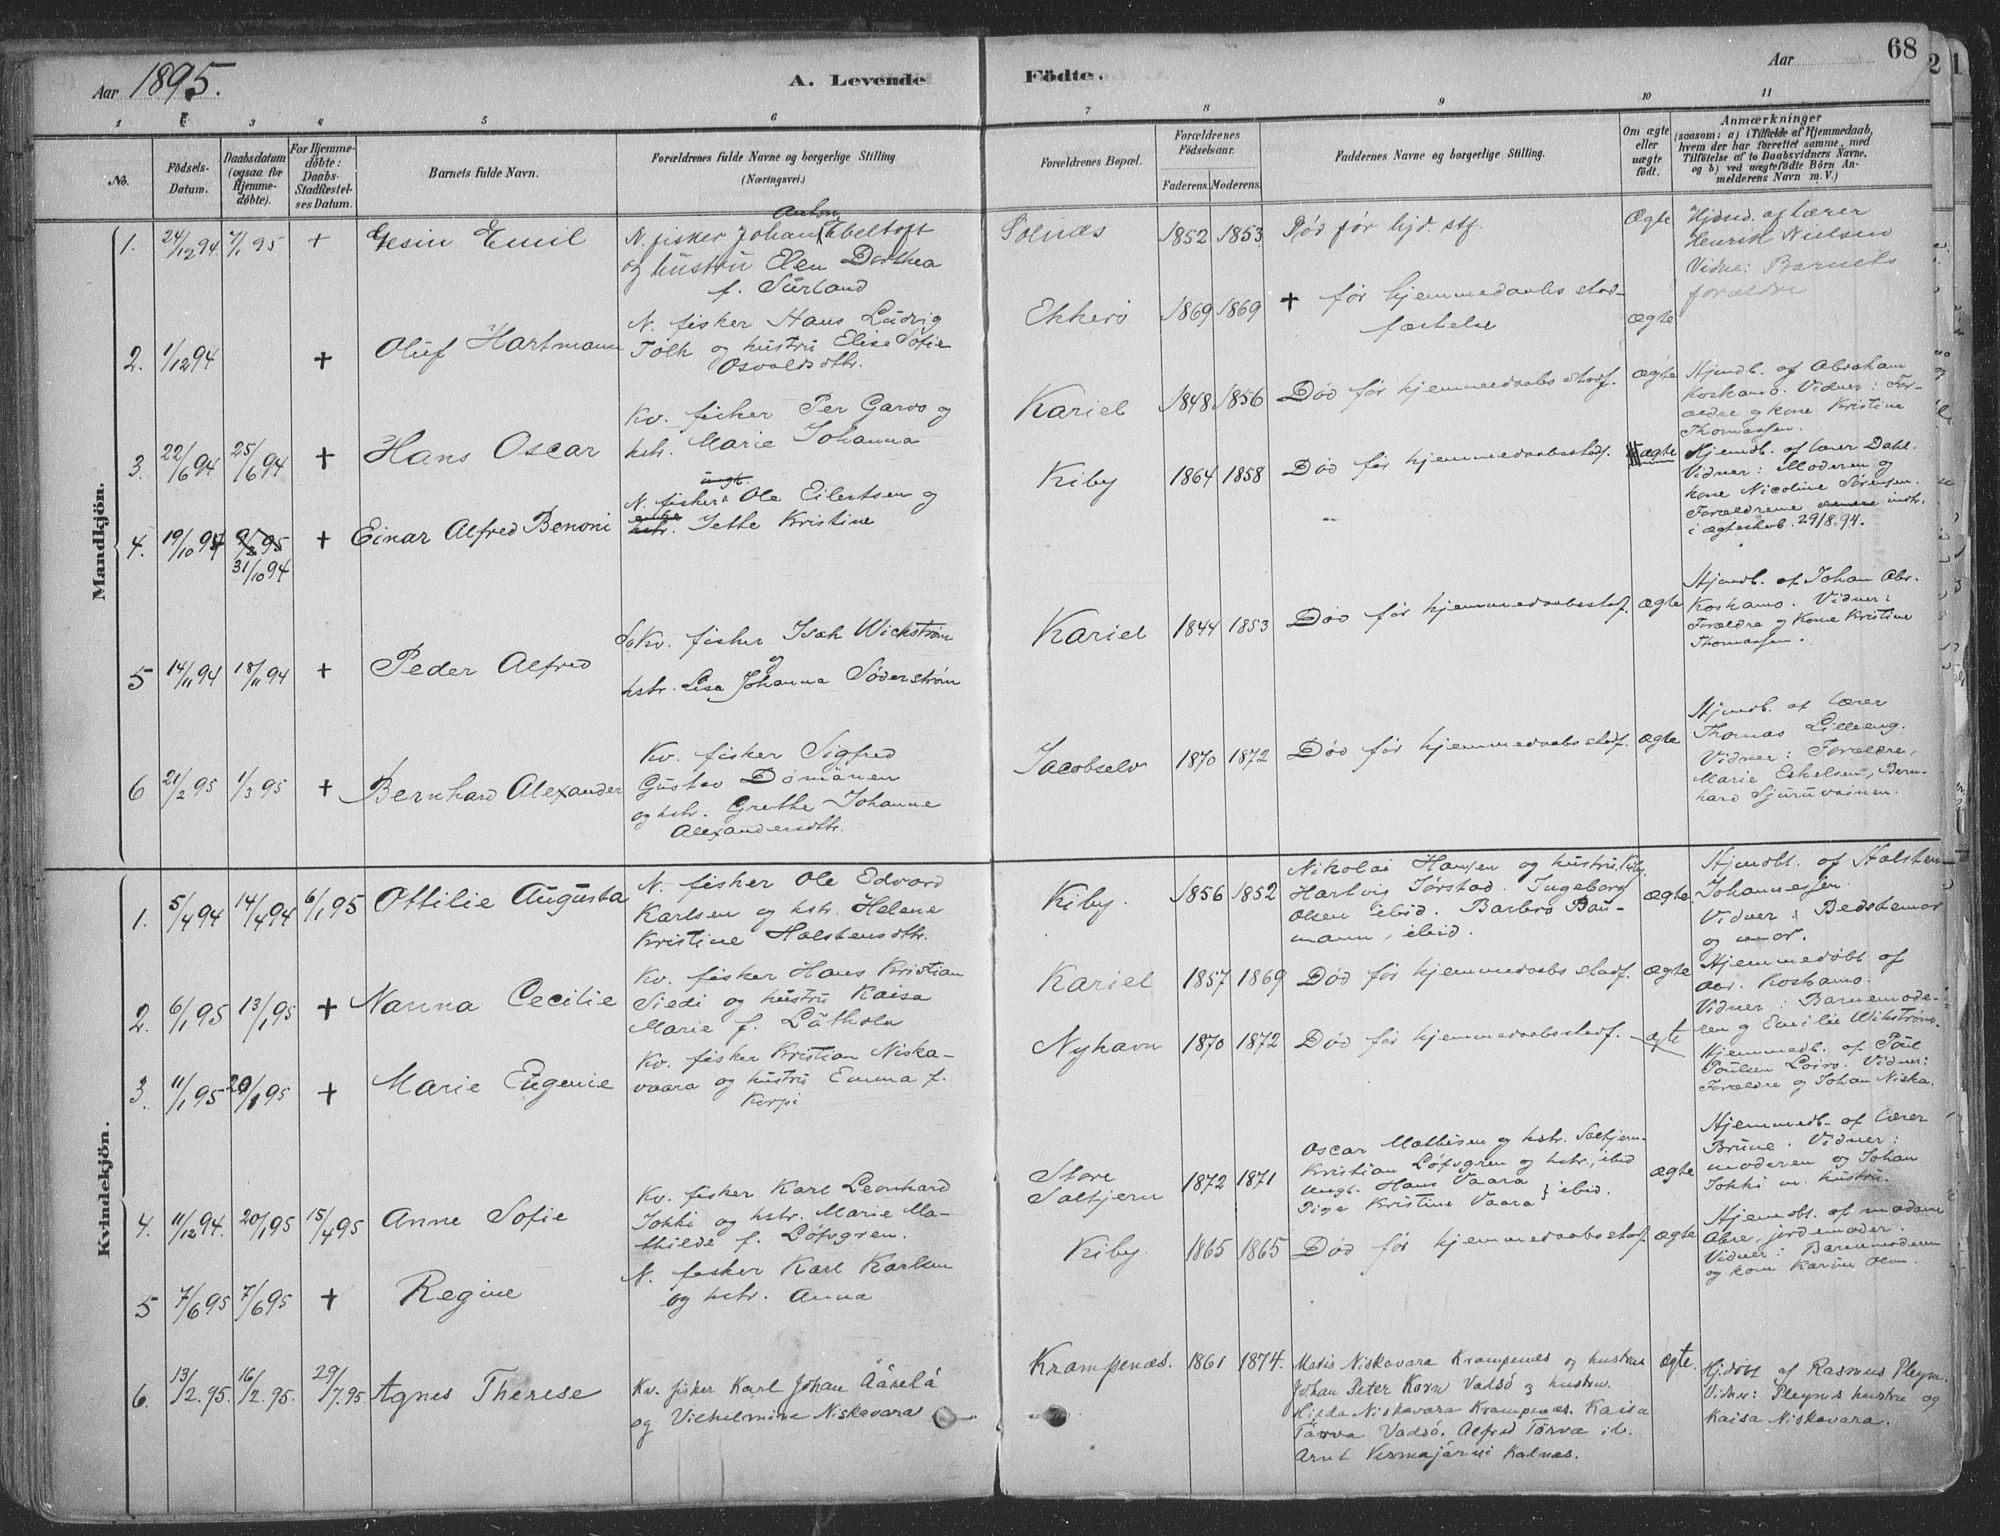 Aar 1895.
A. Levende
Födte.
Aar
68
1
3
4
5
6
7
8
9
10
11
No.
Födsels-
Datum.
Daabsdatum
(ogsaa for
Hjemme-
döbte).
For Hjemme-
döbte:
Daabs-
Stadfæstel-
ses Datum.
Barnets fulde Navn.
Forældrenes fulde Navne og borgerlige Stilling
(Næringsvei.)
Forældrenes Bopæl.
Forældrenes
Födselsaar.
Faderens. Moderens.
Faddernes Navne og borgerlige Stilling.
Om ægte
eller
uægte
födt.
Anmærkninger
(saasom: a) i Tilfælde af Hjemmedaab,
hvem der har forrettet samme, med
Tilföielse af to Daabsvidners Navne,
og b) ved uægtefödte Börn An-
melderens Navn m. V.)
Mandkjön.
1. 24/12 94 7/1 95 + Gesin Emil
Anton
N. fisker Johan Ebeltoft
og hustru Elen Dorthea
f. Surland
1852 1853 Død før hjd. stf. Ægte
Hjdød. af lærer
Henrik Nielsen
Vidne: Barnets
forældre
2. 1/12 94 + Oluf Hartmann
N. fisker Hans Ludvig
Tolk og hustru Elise Sofie
Osvaldsdthr.
Ekkerö 1869 1869 + før hjemmedaabs stad-
fæstelse
ægte
3. 22/6 94 25/6 94 + Hans Oscar
Kv. fisker Per Garvo og
hstr. Marie Johanna
Kariel 1848 1856 Død før hjemmedaabs stadf. ægte
Hjmdb. af Abraham
Koskamo. Vidner: For-
ældre og kone Kristine
Thomassen.
4. 19/10 94 31/10 94 + Einar Alfred Benoni
ungk.
N. fisker Ole Eilertsen og
hstr. Jette Kristine
Kiby 1864 1858 Død før hjemmedaabsstadf. ægte
Hjemdb. af lærer Dahl.
Vidner: Moderen og
kone Nicoline Sørensen.
Forældrene indtr.
i ægteskab. 29/8.94.
5 14/11 94 18/11 94 + Peder Alfred
Kv. fisker Isak Wickstrøm
og
hstr. Lisa Johanna Söderström
Kariel 1844 1853 Død før hjemmedaabsstadf. ægte
Hjmdb. af Johan Abr.
Koskamo. Vidner:
Forældre og Kone Kristine
Thomassen.
6 21/2 95 1/3 95 + Bernhard Alexander
Kv. fisker Sigfred
Gustav Dömänen
og hstr. Grethe Johanne
Alexandersdthr.
Jacobselv 1870 1872 Død før hjemmedaabsstadf. ægte
Hjmdb. af lærer
Thomas Lilleeng.
Vidner: Forældre,
Marie Eskelsen, Bern-
hard Sjuruvainen.
Kvindekjön.
1. 5/4 94 14/4 94 6/1 95 Ottilie Augusta
N. fisker Ole Edvard
Karlsen og hstr. Helene
Kristine Holstensdthr.
Kiby. 1856 1852
Nikolai Hansen og hustru Kiby.
Hartvig Törstad. Ingeborg
Olsen ibid. Barbro Bau-
mann, ibid.
ægte.
Hjmdbt. af Holsten
Johannessen.
Vidner: Bedstemor
og mor.
2. 6/1 95 13/1 95 + Nanna Cecilie
Kv. fisker Hans Kristian
Siedi og hustru Kaisa
Marie f. Låthola
Kariel 1857 1869 Død før hjemmedaabs stadf. ægte
Hjemmedøbt af
Koskamo.
Vidner: Barnemode-
ren g Emilie Wikström.
3. 11/1 95 20/1 95 + Marie Eugenie
Kv. fisker Kristian Niska-
vaara og hustru Emma f.
Korpi
Nyhavn 1870 1872 Død før hjemmedaabsstadf. ægte
Hjemmedb. af Poul
Poulsen Loiro. Vidner:
Forældre og Johan Niska.
4. 11/12 94. 20/1 95 15/4 95 Anne Sofie
Kv. fisker Karl Leonhard
Jokki og hstr. Marie Ma-
thilde f. Löfvgren.
Store
Saltjern 1872 1871
Oscar Mathisen og hstr. Saltjern.
Kristian Löfvgren og hstr., ibid
Ungk. Hans Vaara
Pige Kristine Vaara } ibid.
ægte
Hjemmedb. af lærer
Brune. Vidner:
moderen og Johan
Jokki m. hustru.
5 7/6 95 7/6 95 + Regine
N. fisker Karl Karlsen
og hstr. Anna
Kiby. 1865 1865 Død før hjemmedaabsstadf. ægte
Hjemdbt. af madame
Abre, jordemoder.
Vidner: Barnemoderen
og kone Karine Olsen.
6. 13/2.95. 16/2.95. 29/7.95. Agnes Therese
Kv. fisker Karl Johan Äärelä
og Vilhelmine Niskavara
Krampenæs. 1861 1874.
Matis Niskavara Krampenes og hustru
Johan Peter Korn Vadsö og hustru.
Hilda Niskavara Krampenæs. Kaisa
Tärva Vadsö. Alfred Törva ib.
Arnt Vesmajärvi Kalnæs.
ægte.
Hjdöbt af Rasmus Pleym.
Vidner: Pleyms hustru og
Kaisa Niskavara.